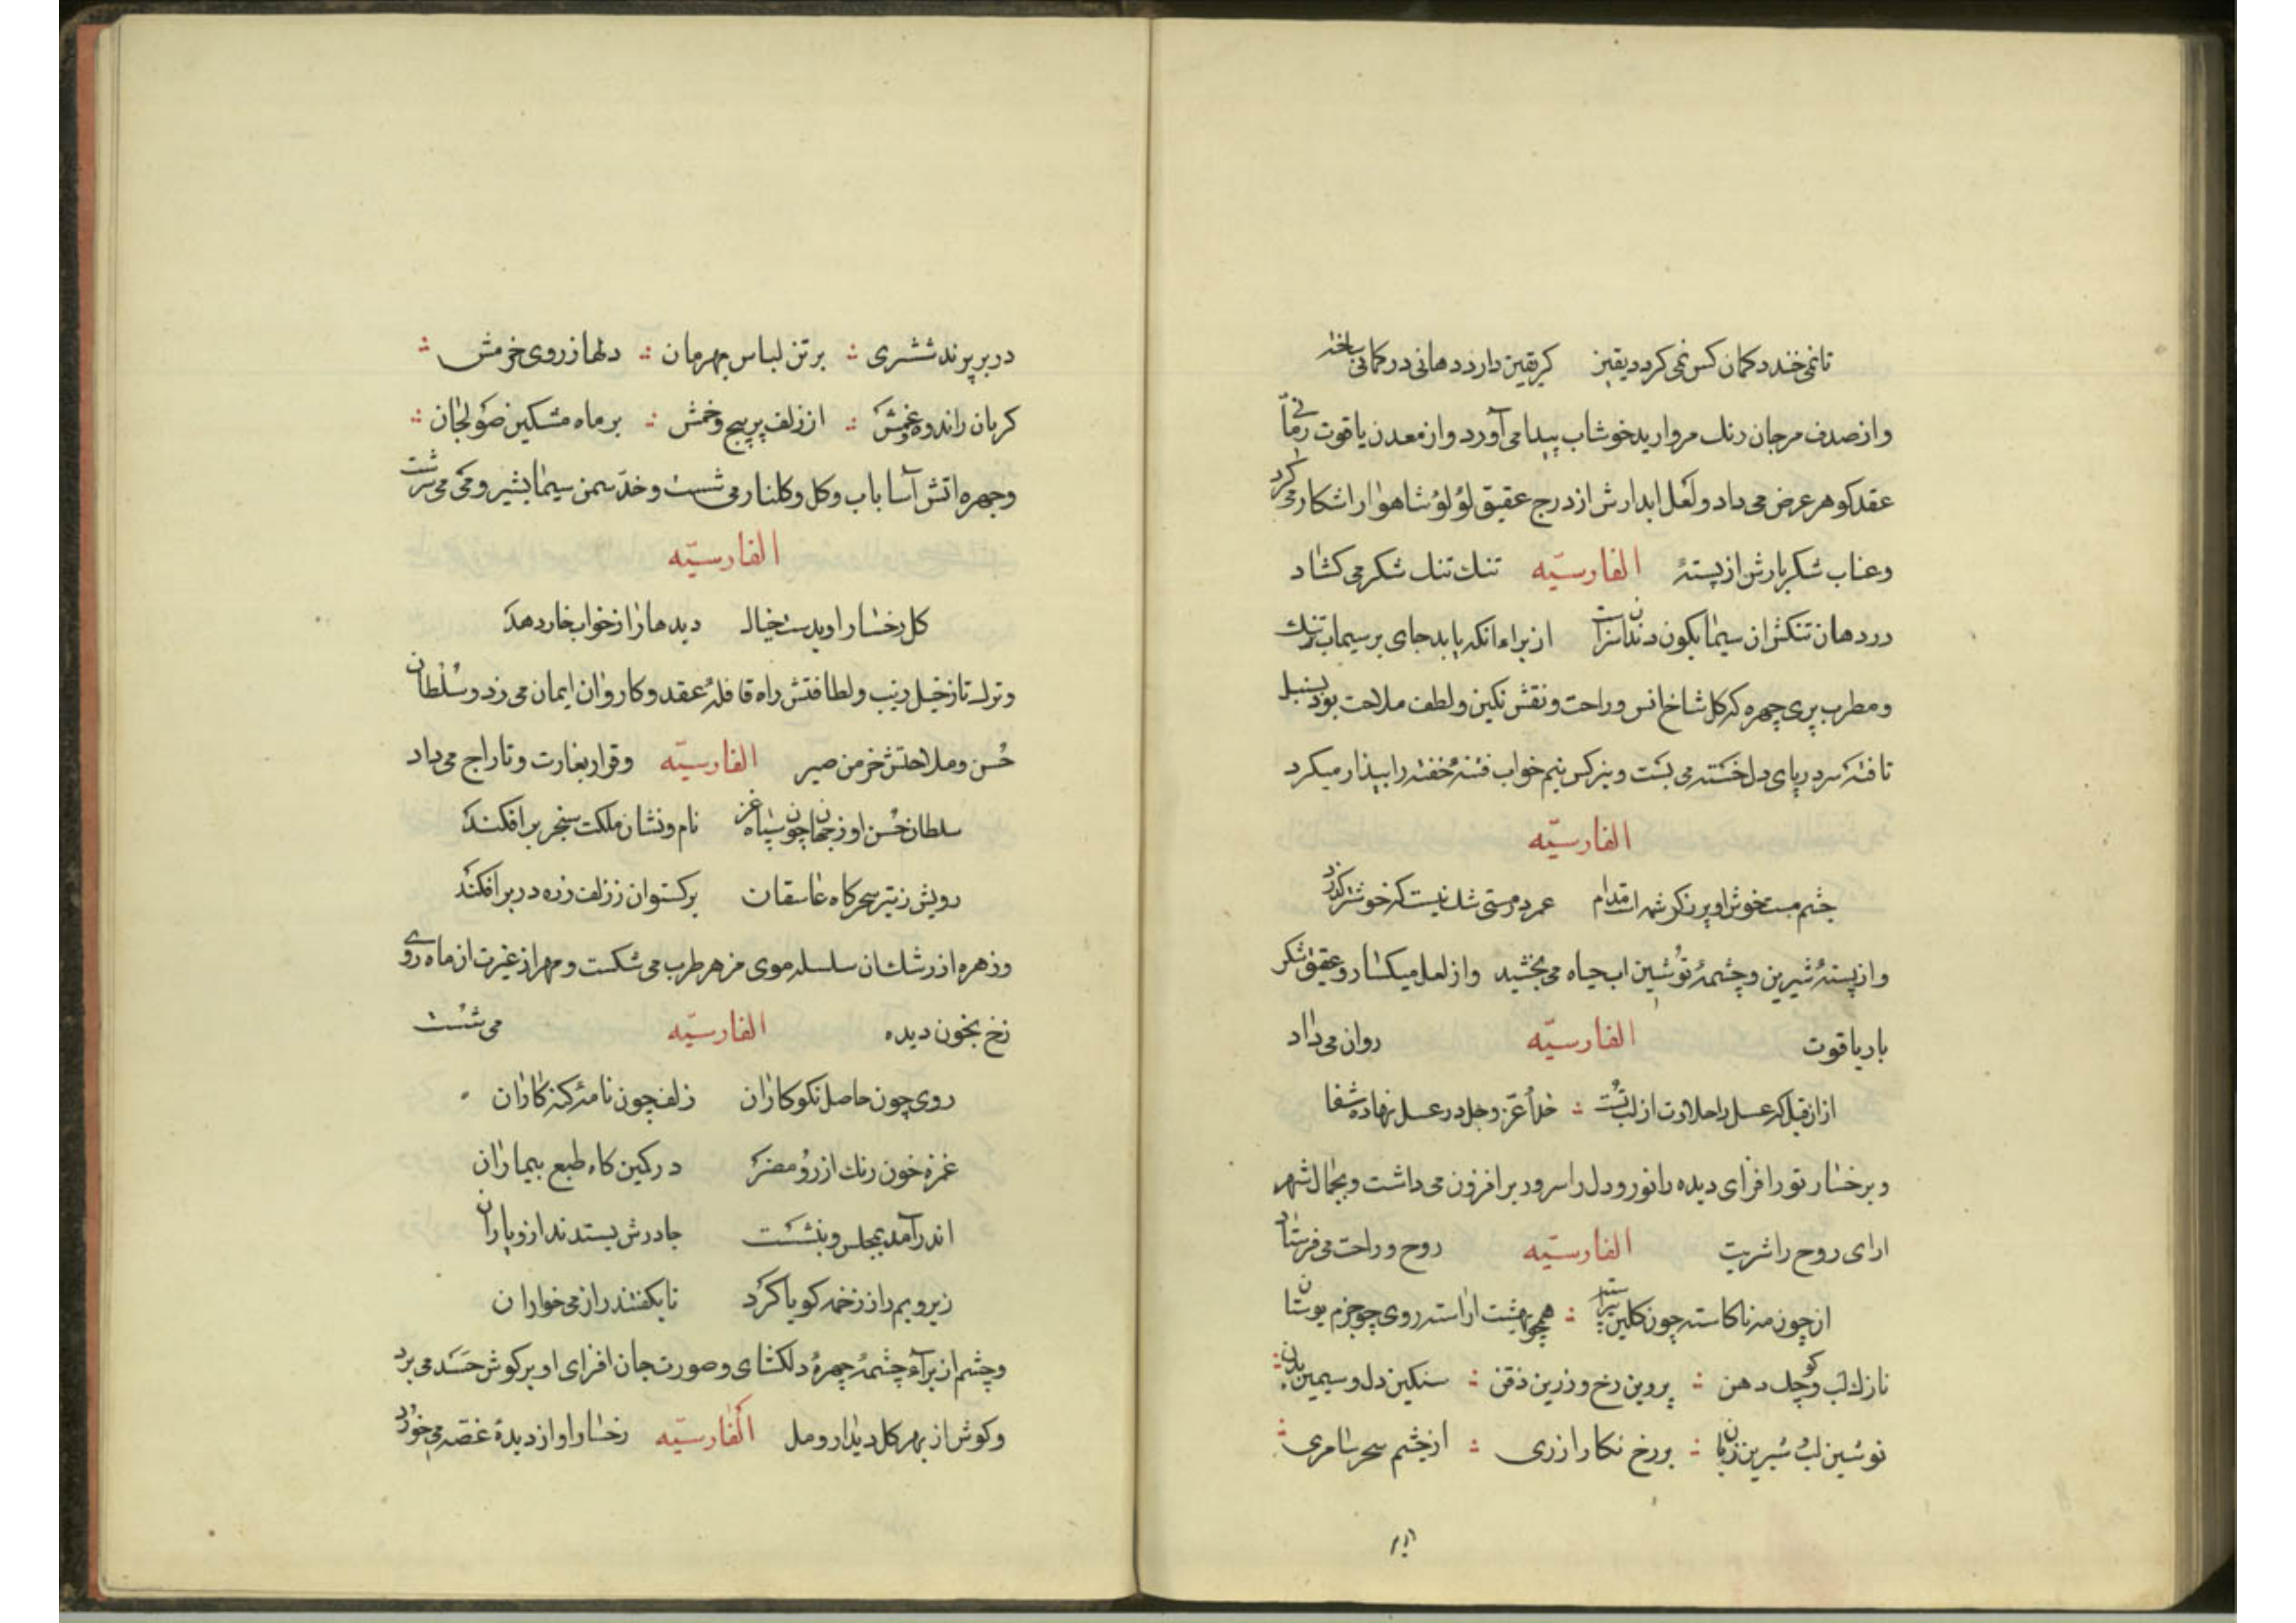 تا نمی خندد کمان کس نمی کردد یقین کر یقین دارد دهانی در کمانی ساخته
و از صدف مرجان رنك مروارید خوشاب پیدا می آورد و از معدن یاقوت رمّانی
عقد کوهر عرض می داد و لعل ابدارش از درج عقیق لؤلؤ شاهوار اشکار می کرد
و عناب شکر بارش از پستهٔ الفارسیّه تنك تنك شکر می کشاد
در دهان تنکش ان سیماب کون دندان از برای انکه یابد جای بر سیماب تنك
و مطرب پری چهره که کل شاخ انس و راحت و نقش نکین و لطف ملاحت بود بسنبل
تافته سر در پای دل خسته می بست و بنرکس نیم خواب فتنهٔ خفته را بیذار میکرد
الفارسیّه
چشم مست خوش او پر ز کرشمه است مدام عمر در مستی شك نیست که خوشتر کذرد
و از پستهٔ شیرین و چشمهٔ نوشین اب حیاه می بخشید و از لعل میکسار و عقیق شکر
بار یاقوت الفارسیّه روان می داد
از ان قبل که عسل را حلاوت از لب تست خدا عزّ و جل در عسل نهاده شفا
و برخسار نور افزای دیده را نور و دل را سرود بر افزون می داشت و بجمال شهر
ارای روح را شربت الفارسیّه روح و راحت می فرستاد
از چون مه ناکاسته چون کلبن پیراسته همچو بهشت اراسته روی چو خرم بوستان
نازك لب و کوچك دهن پروین رخ و زرین ذقن سنکین دل و سیمین بدن
نوشین لب شیرین زبان بر رخ نکار ازری از چشم سحر سامری
در بر پرند ششتری بر تن لباس بهرمان دلها ز روی خرمش
کریان ز اندوه و غمش از زلف پر پیچ و خمش بر ماه مشکین صولجان
و چهره اتش آسا باب و کل و کلنار می شست و خدّ سمن سیما بشیر و می می سرشت
الفارسیّه
کل رخسار او بدست خیال دیدها را ز خواب خار دهد
و ترك تاز خیل زیب و لطافتش راه قافلهٔ عقد و کاروان ایمان می زد و سُلْطان
حُسن و ملاحتش خرمن صبر الفارسیّه و قرار بغارت و تاراج می داد
سلطان حُسن او ز جهان چون سپاه غز نام و نشان ملکت سنجر بر افکند
رویش ز تیر سحرکاه عاشقان برکستوان ز زلف زره در بر افکند
و زهره از رشك ان سلسله موی مزهر طرب می شکست و مهر از غیرت از ماه روی
رخ بخون دیده الفارسیّه می شست
روی چون حاصل نکوکاران زلف چون نامهٔ کنه کاران
غمزه خون رنك از رو مضمر در کمین کاه طبع بیماران
اندر آمد بمجلس و بنشست جادرش بستدند ازو یاران
زیر و بم را ز زخمه کویا کرد تا بکفتند راز می خواران
و چشم از برای چشمهٔ چهرهٔ دلکشای و صورت جان افزای او بر کوش حسد می برد
و کوش از بهر کل دیدار و مل الفارسیّه رخسار او از دیدهٔ غصّه می خورد